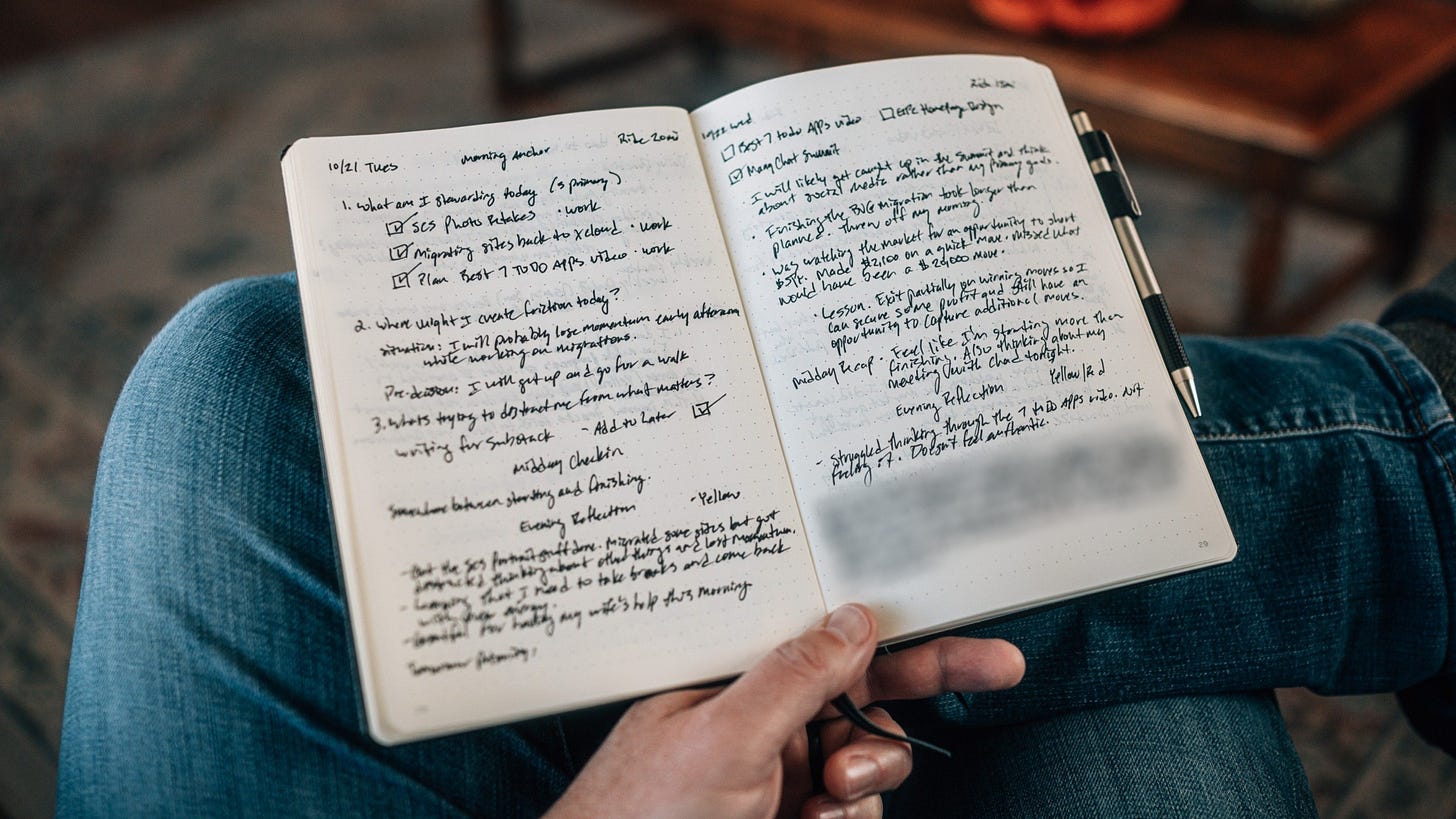 10/21 Tues morning anchor Ride 20mi
1. What am I stewarding today (3 primary)
SCS Photo Retakes · work
Migrating sites back to xcloud · work
Plan Best 7 TODO APPS video · work
2. Where might I create friction today?
situation: I will probably lose momentum early afternoon
while working on migrations.
Pre-decision: I will get up and go for a walk
3. Whats trying to distract me from what matters?
writing for Substack - Add to Later
Midday Checkin
Somewhere between starting and finishing.
Evening Reflection - Yellow
- Got the SCS portrait stuff done. Migrated some sites but got
distracted thinking about other things and lost momentum.
- Learning that I need to take breaks and come back
with energy.
- Grateful for having my wife's help this morning
Tomorrow
10/22 Wed Ride
Best 7 todo Apps video Homepage Design
ManyChat Summit
I will likely get caught up in the Summit and think
about social media rather than my primary goals.
· Finishing the migration took longer than
planned. Threw off my morning.
· Was watching the market for an opportunity to short
Made $2,100 on a quick move. Missed what
would have been a $20,000 move.
· Lesson. Exit partially on winning moves so I
can secure some profit and still have an
opportunity to capture additional moves.
midday recap · Feel like I'm starting more than
finishing. Also thinking about my
meeting with Chad tonight.
Evening Reflection Yellow/Red
- Struggled thinking through the 7 to Do Apps video. Not
feeling it. Doesn't feel authentic.
29